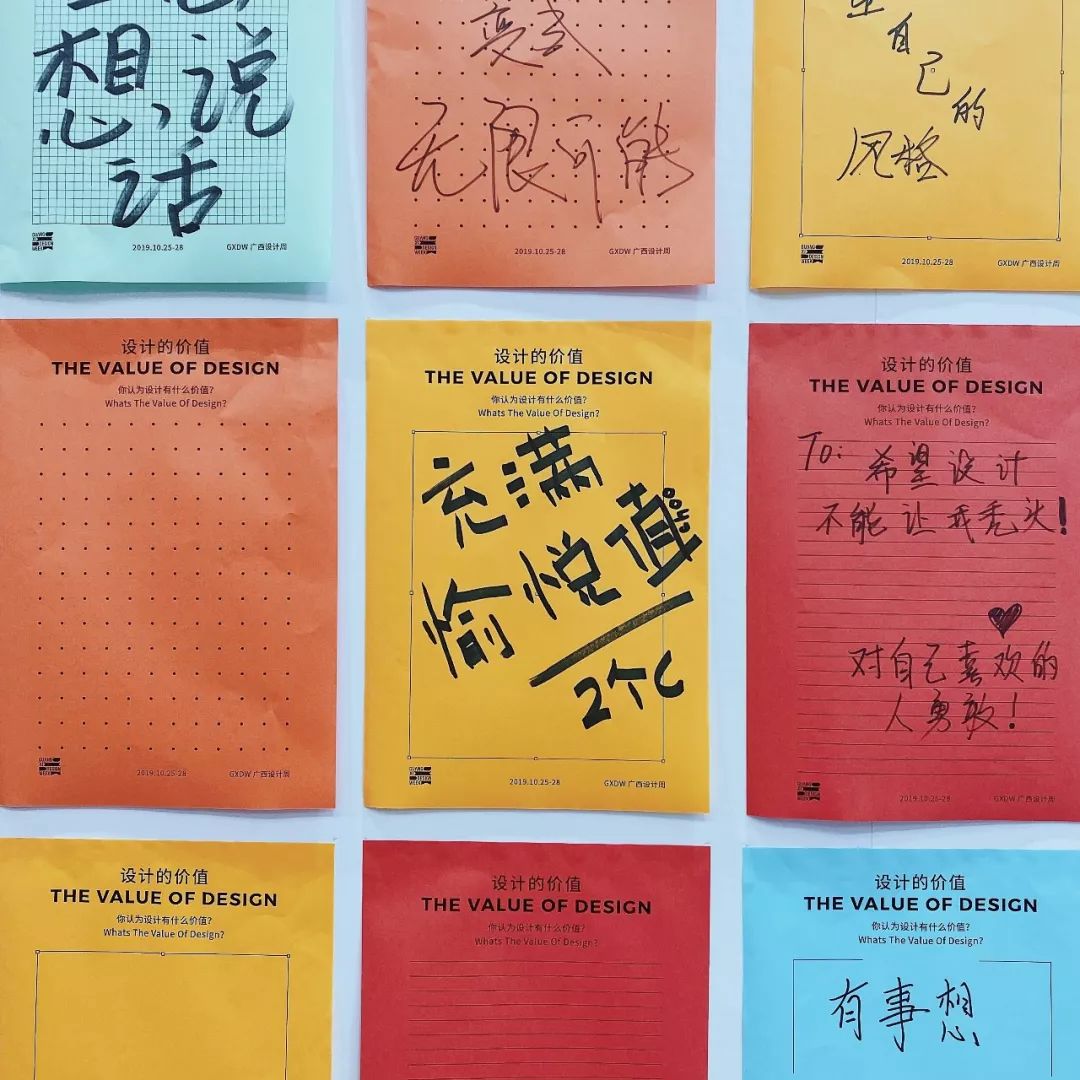 想说
话
2019.10.25-28
GXDW 广西设计周
变式
无限可能
GUANG
XI
DESIGN
WEEK
2019.10.25-28
GXDW 广西设计周
自
己
的
风格
GUANG
XI
DESIGN
WEEK
2019.10.25-28
GXDW 广西设计周
设计的价值
THE VALUE OF DESIGN
你认为设计有什么价值?
Whats The Value Of Design?
GUANG
XI
DESIGN
WEEK
2019.10.25-28
GXDW 广西设计周
设计的价值
THE VALUE OF DESIGN
你认为设计有什么价值?
Whats The Value Of Design?
充满
愉悦值
2个C
GUANG
XI
DESIGN
WEEK
2019.10.25-28
GXDW 广西设计周
设计的价值
THE VALUE OF DESIGN
你认为设计有什么价值?
Whats The Value Of Design?
To: 希望设计
不能让我秃头!
对自己喜欢的
人勇敢!
GUANG
XI
DESIGN
WEEK
2019.10.25-28
GXDW 广西设计周
设计的价值
THE VALUE OF DESIGN
你认为设计有什么价值?
Whats The Value Of Design?
设计的价值
THE VALUE OF DESIGN
你认为设计有什么价值?
Whats The Value Of Design?
设计的价值
THE VALUE OF DESIGN
你认为设计有什么价值?
Whats The Value Of Design?
有事想